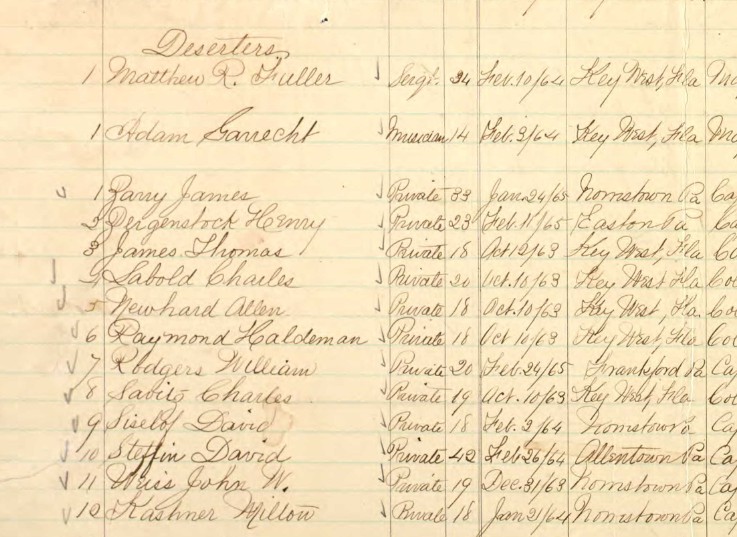 Deserters
1 Matthew R. Fuller Sergt. 24 Feb. 10/64 Key West, Fla
1 Adam Garrecht Musician 14 Feb. 3/64 Key West, Fla
1 Barry James Private 33 Jan. 24/65 Norristown Pa Ca
2 Dergenstock Henry Private 23 Feb. 11/65 Easton Pa Ca
3 James Thomas Private 18 Oct 12/63 Key West, Fla Co
4 Sabold Charles Private 20 Oct. 10/63 Key West Fla Co
5 Newhard Allen Private 18 Oct. 10/63 Key West, Fla. Co
6 Raymond Haldeman Private 18 Oct 10/63 Key West, Fla Co
7 Rodgers William Private 20 Feb. 24/65 Frankford Pa Ca
8 Savitz Charles Private 19 Oct. 10/63 Key West, Fla. Co
9 David Private 18 Feb. 2/64 Ca
10 Steffin David Private 42 Feb 26/64 Allentown Pa Ca
11 Weiss John W. Private 19 Dec. 31/63 Norristown Pa Ca
12 Kashner Milton Private 18 Jan 21/64 Norristown Pa Ca